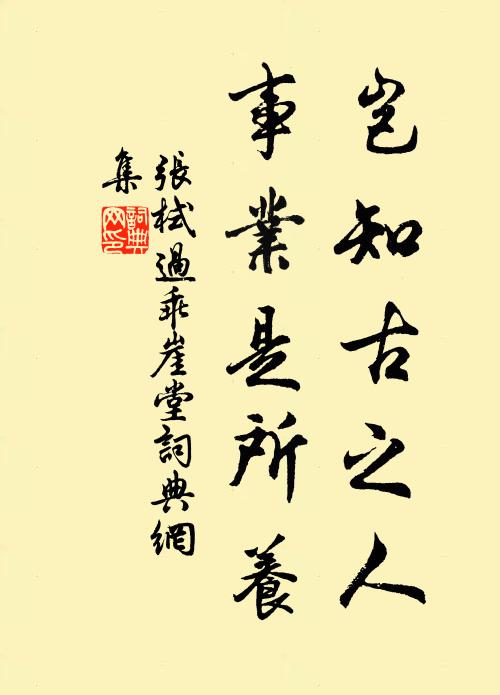 豈知古之人
事業是所養
張栻過乖崖堂詞典網
集
詞典
网印